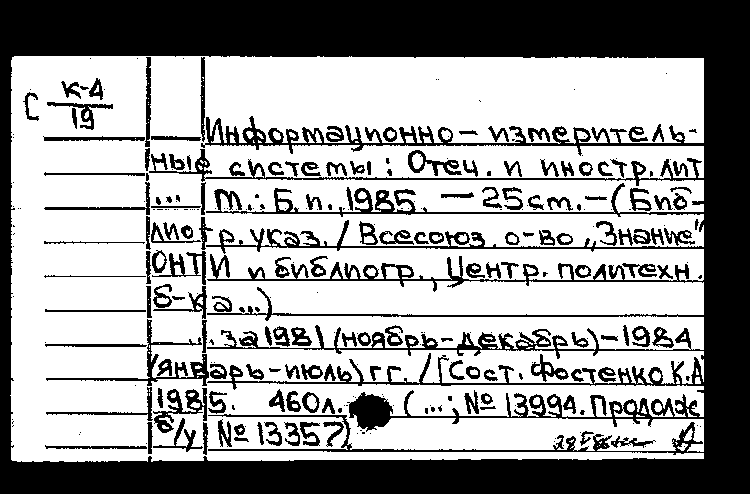 С к-4
19
Информационно-измеритель-
ные системы: Отеч. и иностр. лит
... М.: Б.и., 1985. — 25см. — (Биб-
лиогр. указ. / Всесоюз. о-во „Знание"
ОНТИ и библиогр., Центр. политехн.
б-ка...)
... за 1981 (ноябрь-декабрь)-1984
(январь-июль) гг. / [Сост. Фостенко К.А
1985. 460л. (...; № 13994. Продолж
б/у № 13357)